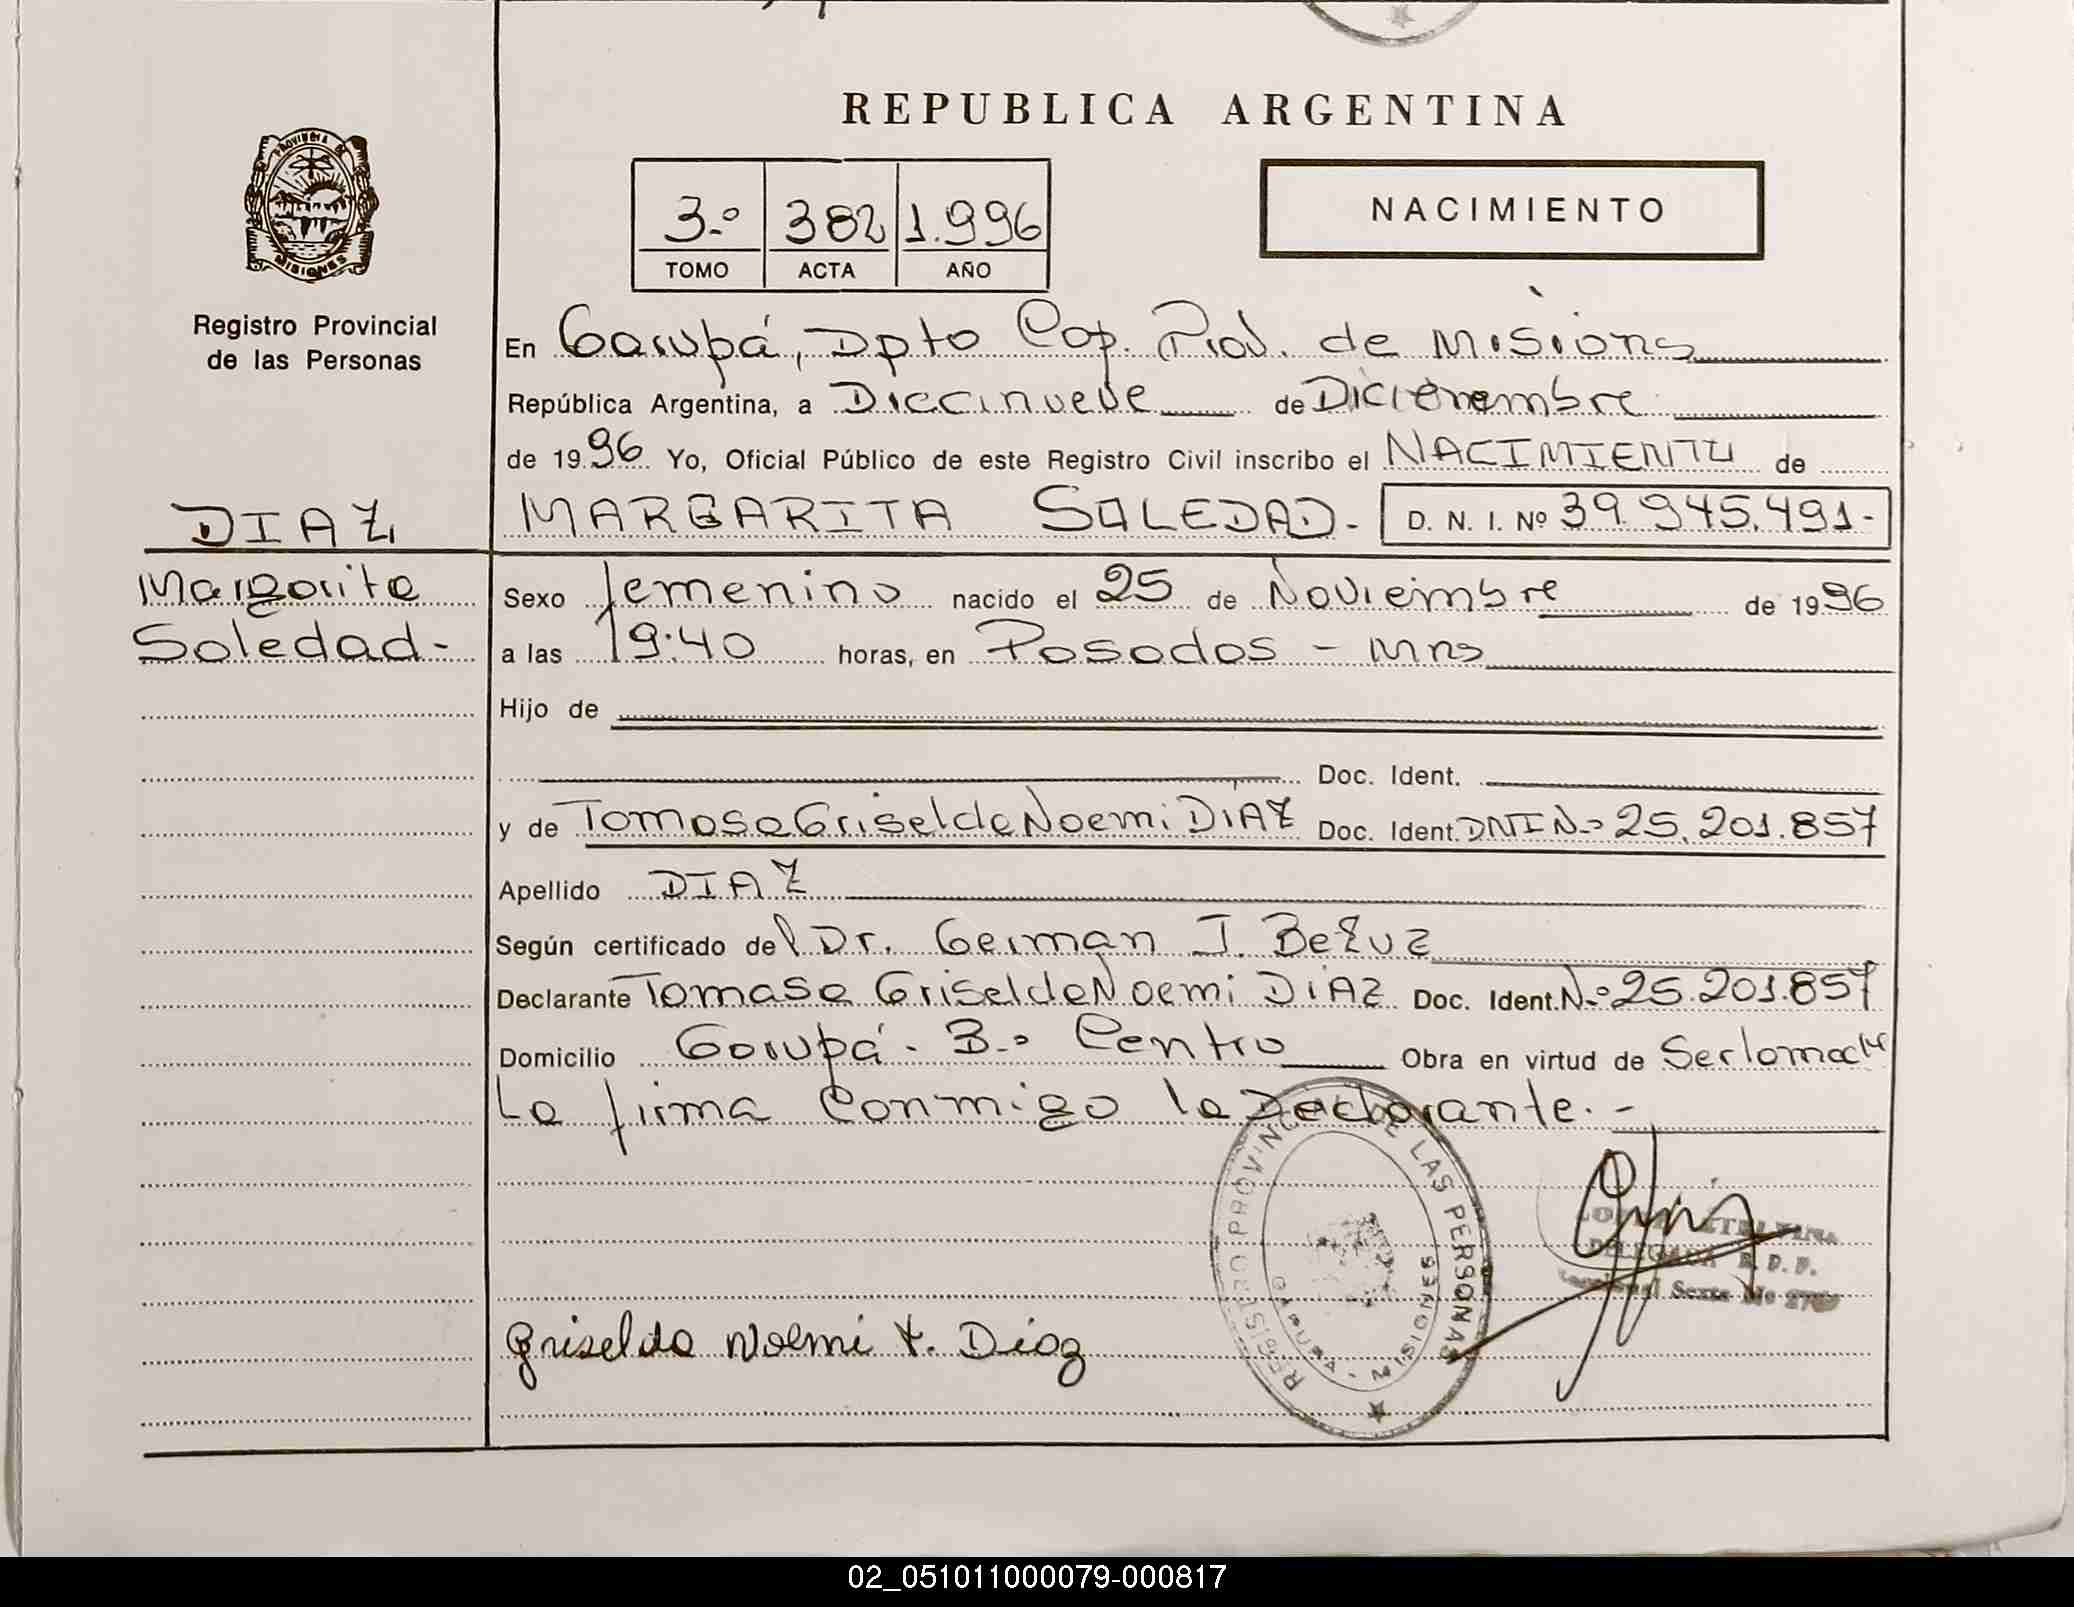 REPUBLICA ARGENTINA
PROVINCIA DE MISIONES
Registro Provincial
de las Personas
3.º 382 1.996
TOMO ACTA AÑO
NACIMIENTO
En Garupá, Dpto Cap. Prov. de Misiones
República Argentina, a Diecinueve de Diciembre
de 1996 Yo, Oficial Público de este Registro Civil inscribo el NACIMIENTO de
DIAZ
MARGARITA SOLEDAD- D. N. I. Nº 39.945.491-
Margarita
Soledad-
Sexo femenino nacido el 25 de Noviembre de 1996
a las 19:40 horas, en Posadas - Mnes
Hijo de
Doc. Ident.
y de Tomasa Griselda Noemi DIAZ Doc. Ident. DNI Nº 25.201.857
Apellido DIAZ
Según certificado del Dr. German J. Bezuz
Declarante Tomasa Griselda Noemi DIAZ Doc. Ident. Nº 25.201.857
Domicilio Garupá - Bº Centro Obra en virtud de Ser la madre
La firma Conmigo la Declarante.-
REGISTRO PROVINCIAL DE LAS PERSONAS
GARUPA - MISIONES
DELEGADA R. P. P.
Griselda Noemi T. Díaz
02_051011000079-000817